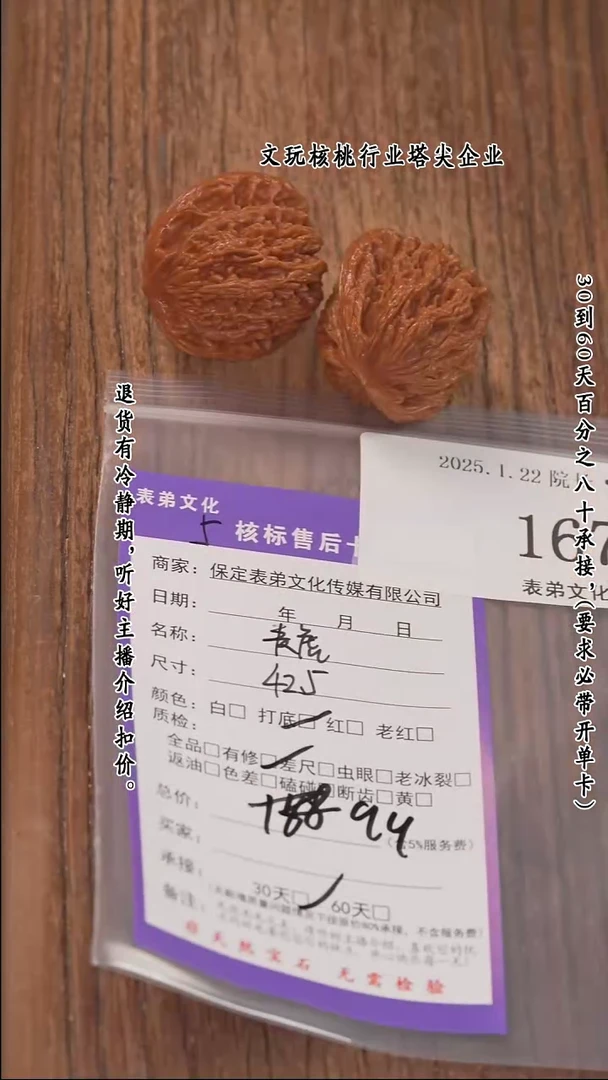 文玩核桃行业塔尖企业
30到60天百分之八十承接，(要求必带开单卡)
退货有冷静期，听好主播介绍扣价。
2025.1.22 院
167
表弟文化
表弟文化
5 核标售后
商家：保定表弟文化传媒有限公司
日期： 年 月 日
名称：
尺寸：425
颜色：白□ 打底□ 红□ 老红□
质检：
全品□有修□差尺□虫眼□老冰裂□
返油□色差□磕碰□断齿□黄□
总价： 94 (含5%服务费)
买家：
承接：
30天□ 60天□
备注：
天然宝石 无需检验